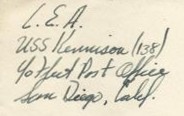 L. E. A.
USS Kennison (138)
℅ Fleet Post Office
San Diego, Calif.